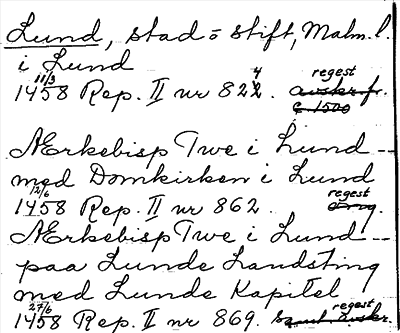 Lund, stad o stift, Malm. l.
i Lund
11/3 regest
1458 Rep. II nr 824. avskr. fr. c. 1500
Ærkebisp Twe i Lund --
med Domkirken i Lund
12/6 regest
1458 Rep. II nr 862.
Ærkebisp Twe i Lund --
paa Lunde Landsting
med Lunde Kapitel
27/6 regest
1458 Rep. II nr 869.